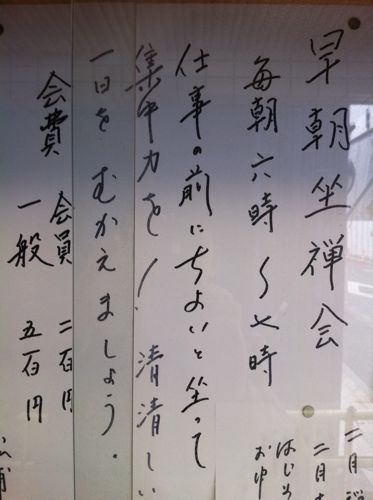 早朝坐禅会
毎朝六時〜七時
仕事の前にちょいと坐って
集中力を！清清しい
一日をむかえましょう。
会費 会員 二百円
一般 五百円
二月
二月
はじめ